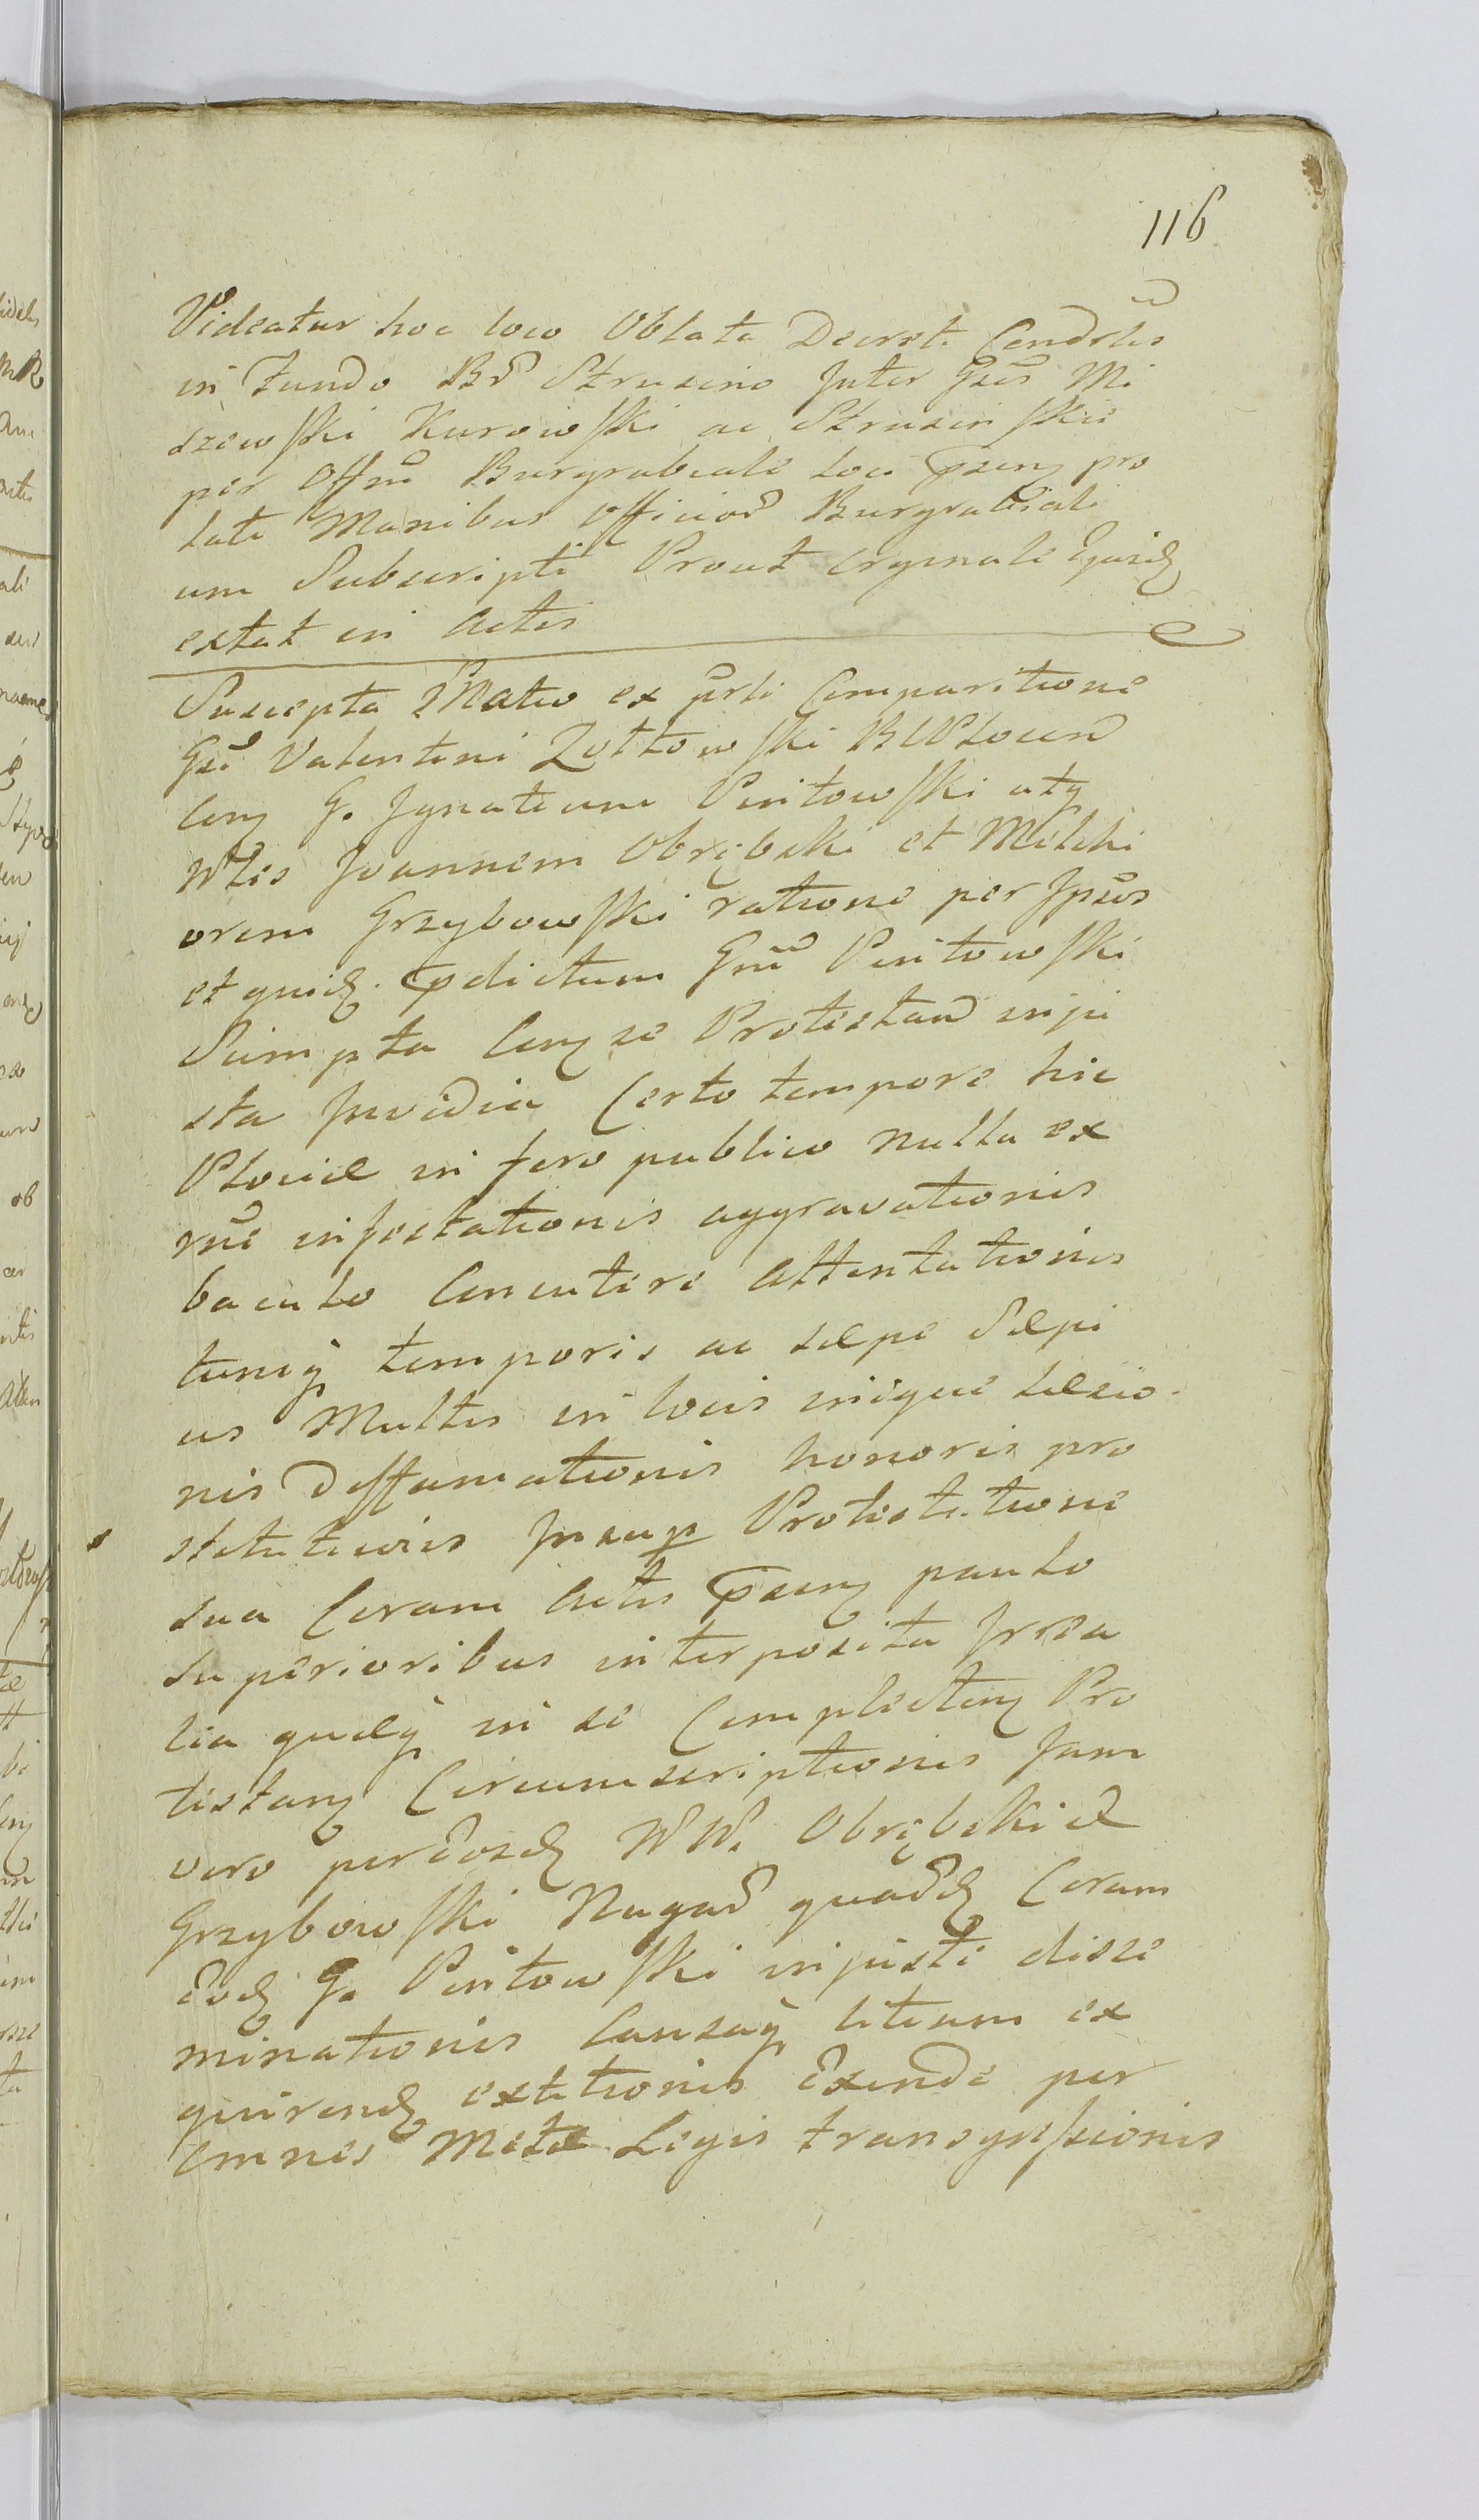 116
Videatur hoc loco Oblata Decreti Condolis
in Fundo Bñ Struzino Inter Gsos Mi
szewski Kurowski ac Struzinskie
per Offm Burgrabiale loci psens pro
lati Manibus Officior Burgrabiali
um Subscripti Prout orginale Ejusd
extat in Actis
Suscepta Ptatio ex psli Comparitione
Gsi Valentini Zółtowski BUPlocen
cong G. Ignatium Piwtowski atq
Wles Joannem Obrębski et Melchi
orem Grzybowski ratione per Ipsos
et quid. pdictum Gnm Piwtowski
Sumpta cong se Protestan inju
sta Invidia Certo tempore hic
Plociæ in foro publico nulla ex
rne infestationis aggravationis
baculo Concutere Attentationis
tumq temporis ac sæpe Sæpi
us Multis in locis inique læsio
nis Deffamationis honoris pro
stitutionis Insup Protestatione
sua Coram Actis psens paulo
superioribus interposita Irrea
lia quæq in se Complecten Pro
testang Circumscriptionis Jam
vero per eosd WW. Obrębski &
Grzybowski Nugar quard Coram
eod G. Piwtowski injuste disse
minationis Causaq litium ex
quirend extitionis Exinde per
omnes Metæ Legis transgressionis